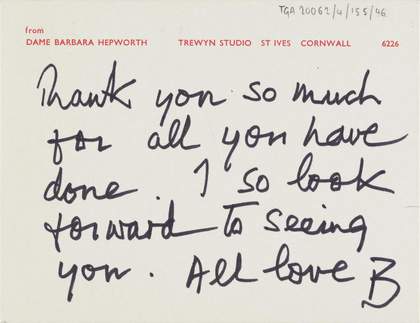 TGA 20062/4/155/46
from
DAME BARBARA HEPWORTH TREWYN STUDIO ST IVES CORNWALL 6226
Thank you so much
for all you have
done. I so look
forward to seeing
you. All love B